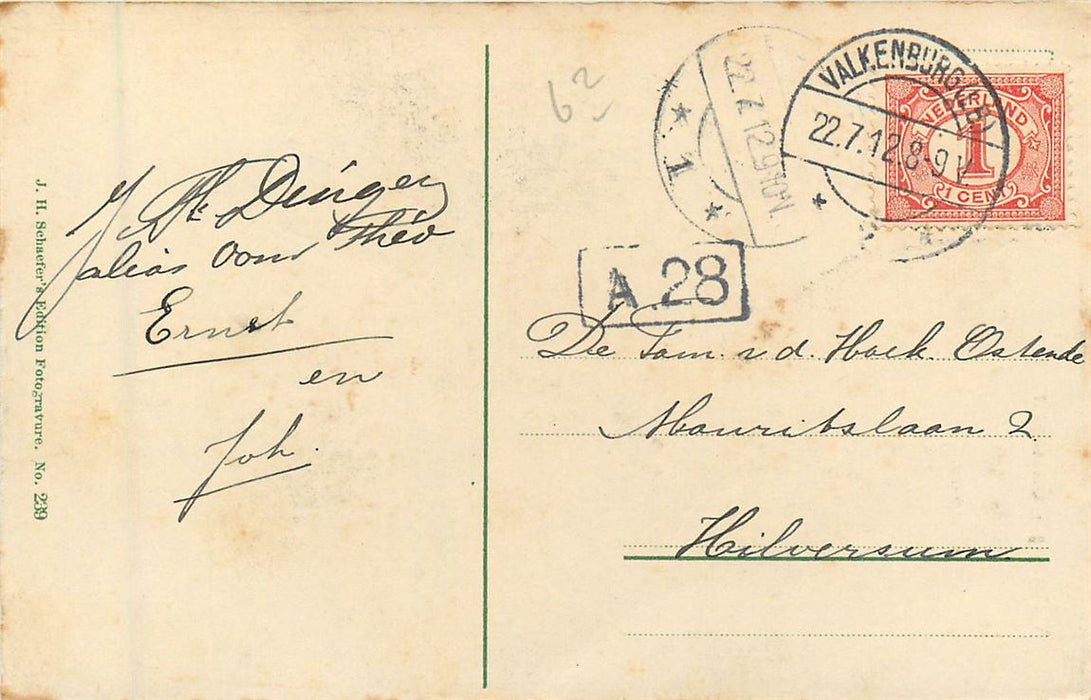 J. H. Schaefer's Edition Fotogravure. No. 239
Dinger
alias Oom Théo
Ernst
en
Joh.
62
1
22.7.12.9-10N.
VALKENBURG
22.7.12.8-9V
NEDERLAND
1
CENT
A 28
De Fam. v d. Hoek Ostende
Mauritslaan 2
Hilversum